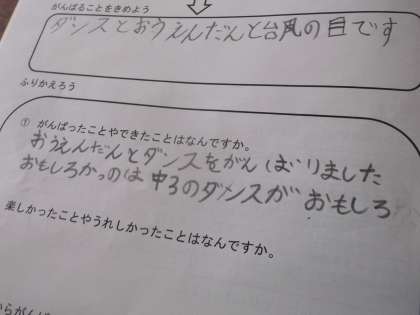 がんばることをきめよう
ダンスとおうえんだんと台風の目です
ふりかえろう
① がんばったことやできたことはなんですか。
おうえんだんとダンスをがんばりました
おもしろかっのは中3のダンスがおもしろ
楽しかったことやうれしかったことはなんですか。